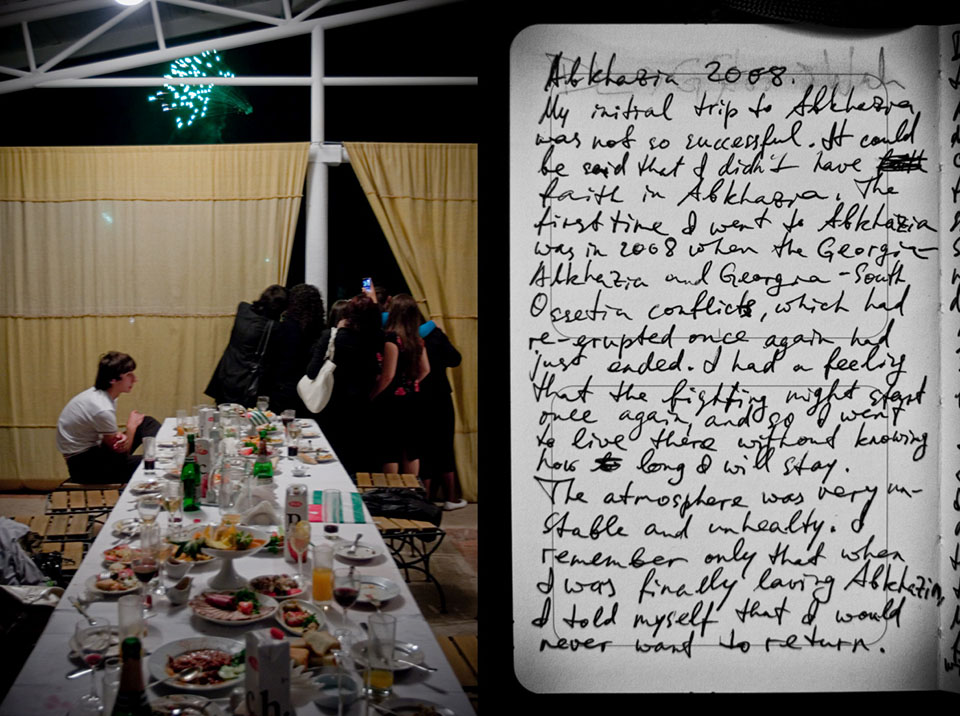 Abkhazia 2008.
My initial trip to Abkhazia
was not so successful. It could
be said that I didn't have
faith in Abkhazia. The
first time I went to Abkhazia
was in 2008 when the Georgia-
Abkhazia and Georgia-South
Ossetia conflicts, which had
re-erupted once again had
just ended. I had a feeling
that the fighting might start
once again, and so I went
to live there without knowing
how long I will stay.
The atmosphere was very un-
stable and unhealty. I
remember only that when
I was finally laving Abkhazia,
I told myself that I would
never want to return.